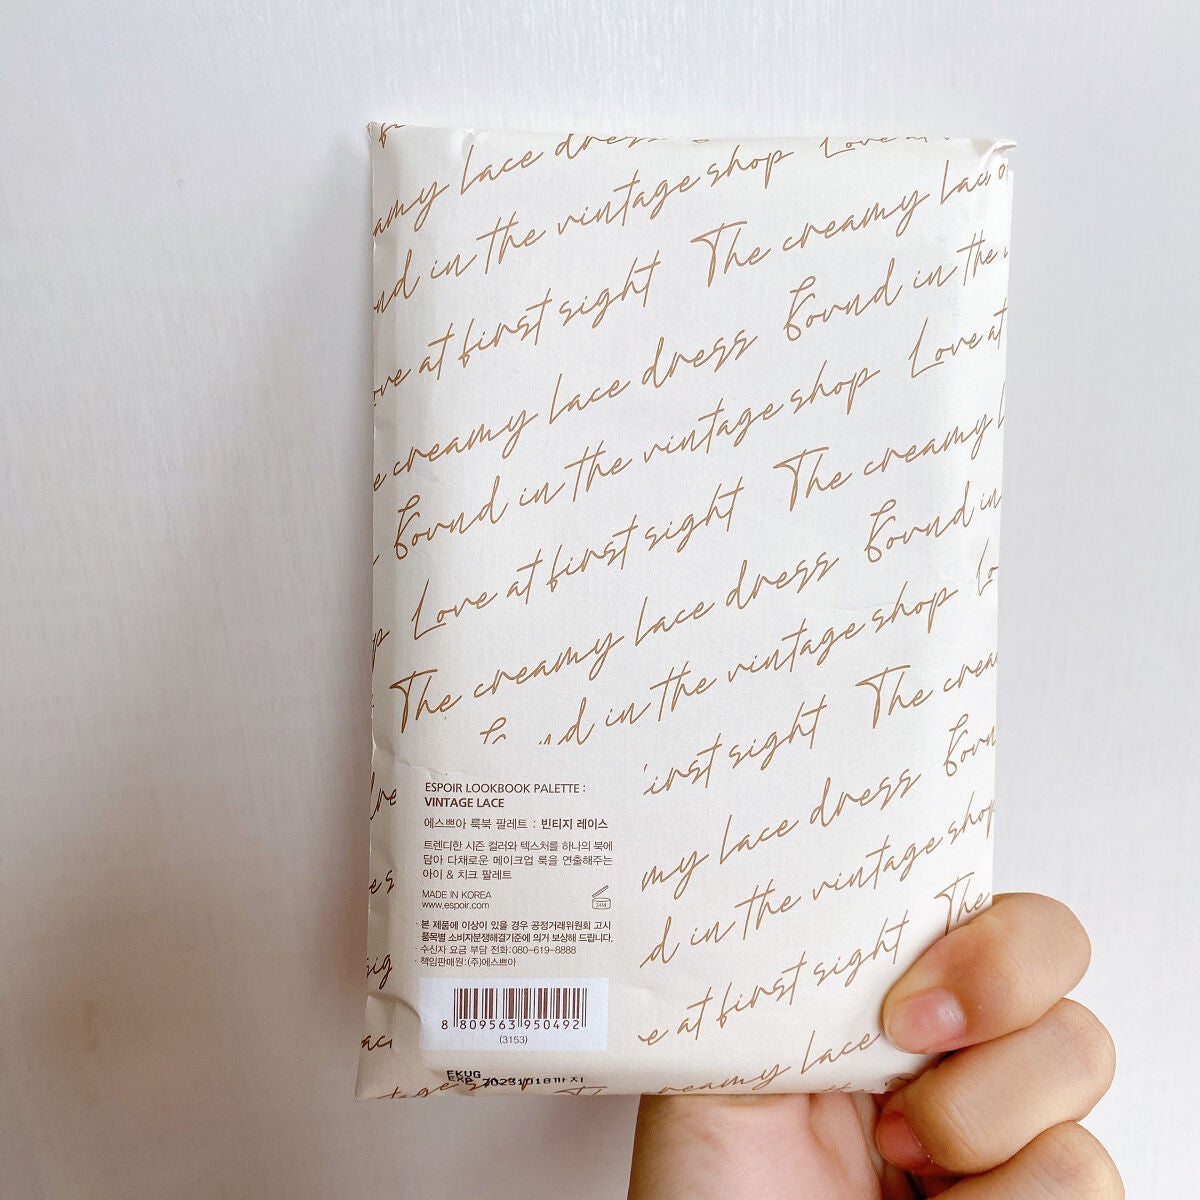 lace dress
amy lace dress Love at
nd in the vintage shop The creamy lace
ve at first sight found in the
e creamy lace dress Love at
found in the vintage shop The creamy
Love at first sight found in
The creamy lace dress Lo
in the vintage shop The crea
irst sight foun
my lace dress
d in the vintage shop The
e at first sight
creamy lace
ESPOIR LOOKBOOK PALETTE :
VINTAGE LACE
에스쁘아 룩북 팔레트 : 빈티지 레이스
트렌디한 시즌 컬러와 텍스처를 하나의 북에
담아 다채로운 메이크업 룩을 연출해주는
아이 & 치크 팔레트
MADE IN KOREA
www.espoir.com
24M
· 본 제품에 이상이 있을 경우 공정거래위원회 고시
품목별 소비자분쟁해결기준에 의거 보상해 드립니다.
· 수신자 요금 부담 전화:080-619-8888
· 책임판매원:(주)에스쁘아
8 809563 950492
(3153)
EKUG
EXP 20231018까지